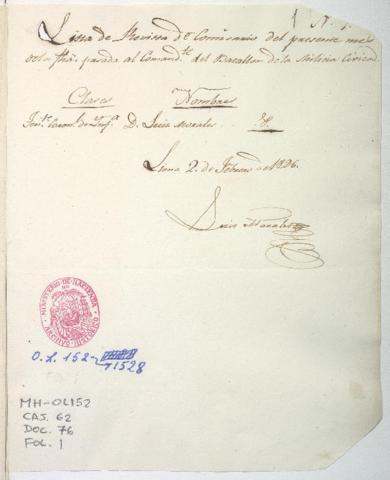 1 N. 1
Lista de Revista de Comisario del presente mes
de la fha. pasada al Comandte del Batallon de la Milicia Civica
Clases Nombres
Tente Coronl de Infa D. Luis Morales P.
Lima 2. de Febrero de 1826.
Luis Morales
MINISTERIO·DE·HACIENDA
ARCHIVO·HISTORICO
O.L. 152-
1528
MH-OL152
CAJ. 62
DOC. 76
FOL. 1